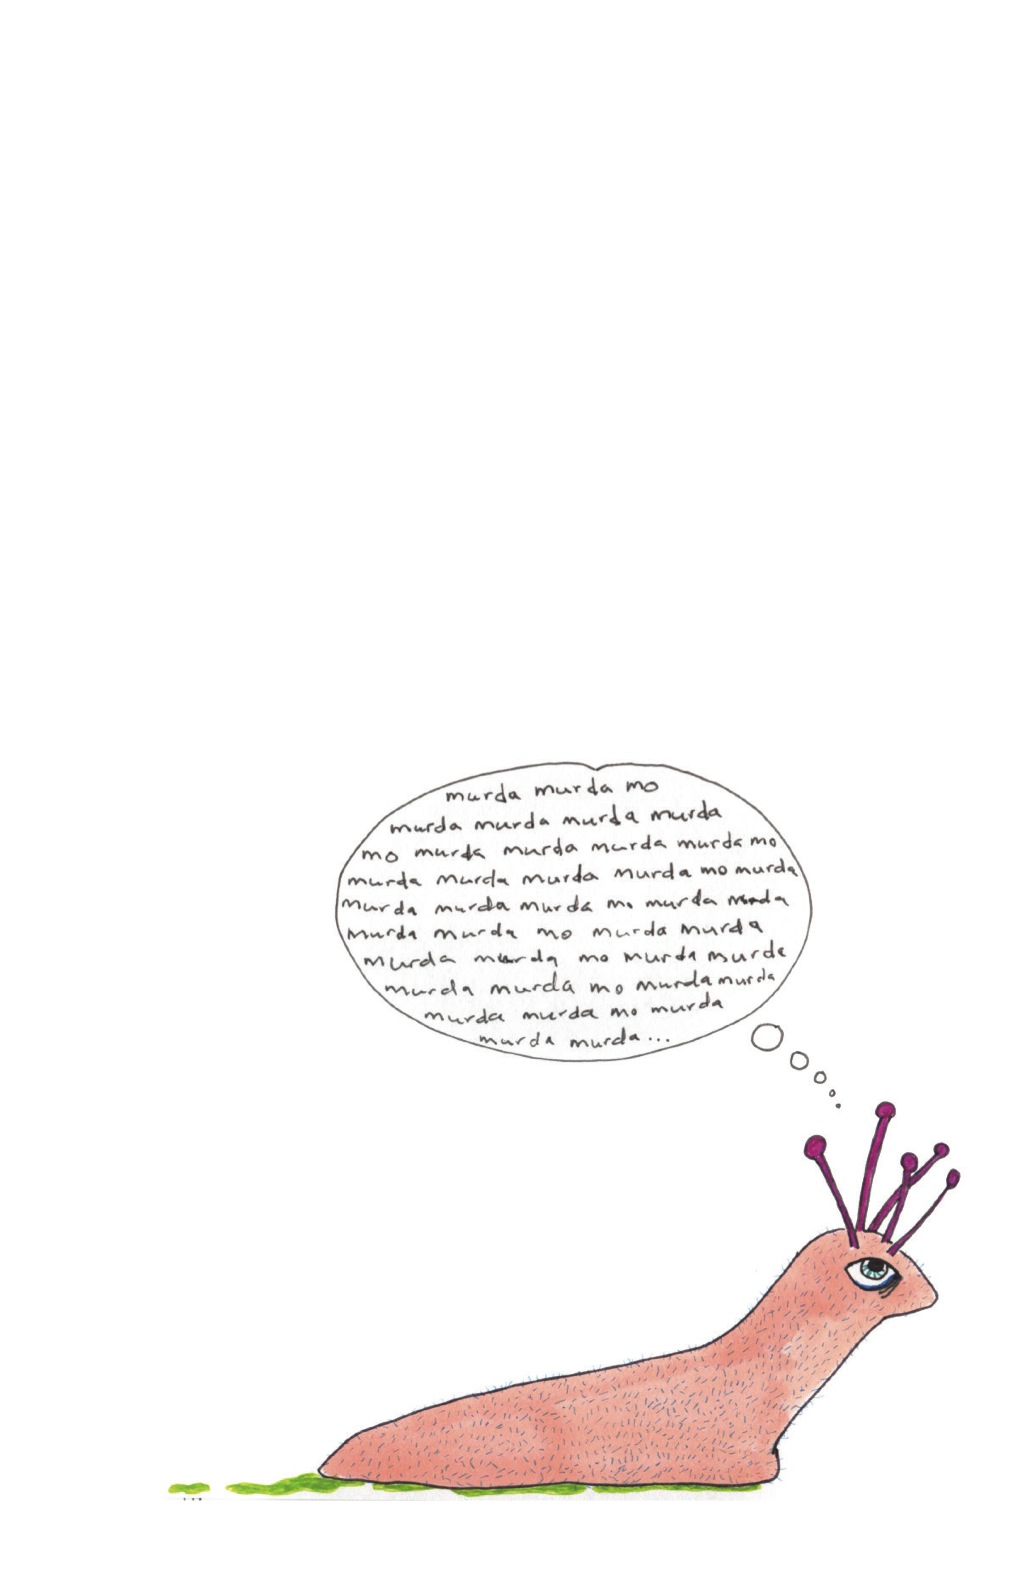 murda murda mo
murda murda murda murda
mo murda murda murda murda mo
murda murda murda murda mo murda
murda murda murda mo murda murda
murda murda mo murda murda
murda murda mo murda murda
murda murda mo murda murda
murda murda mo murda
murda murda...